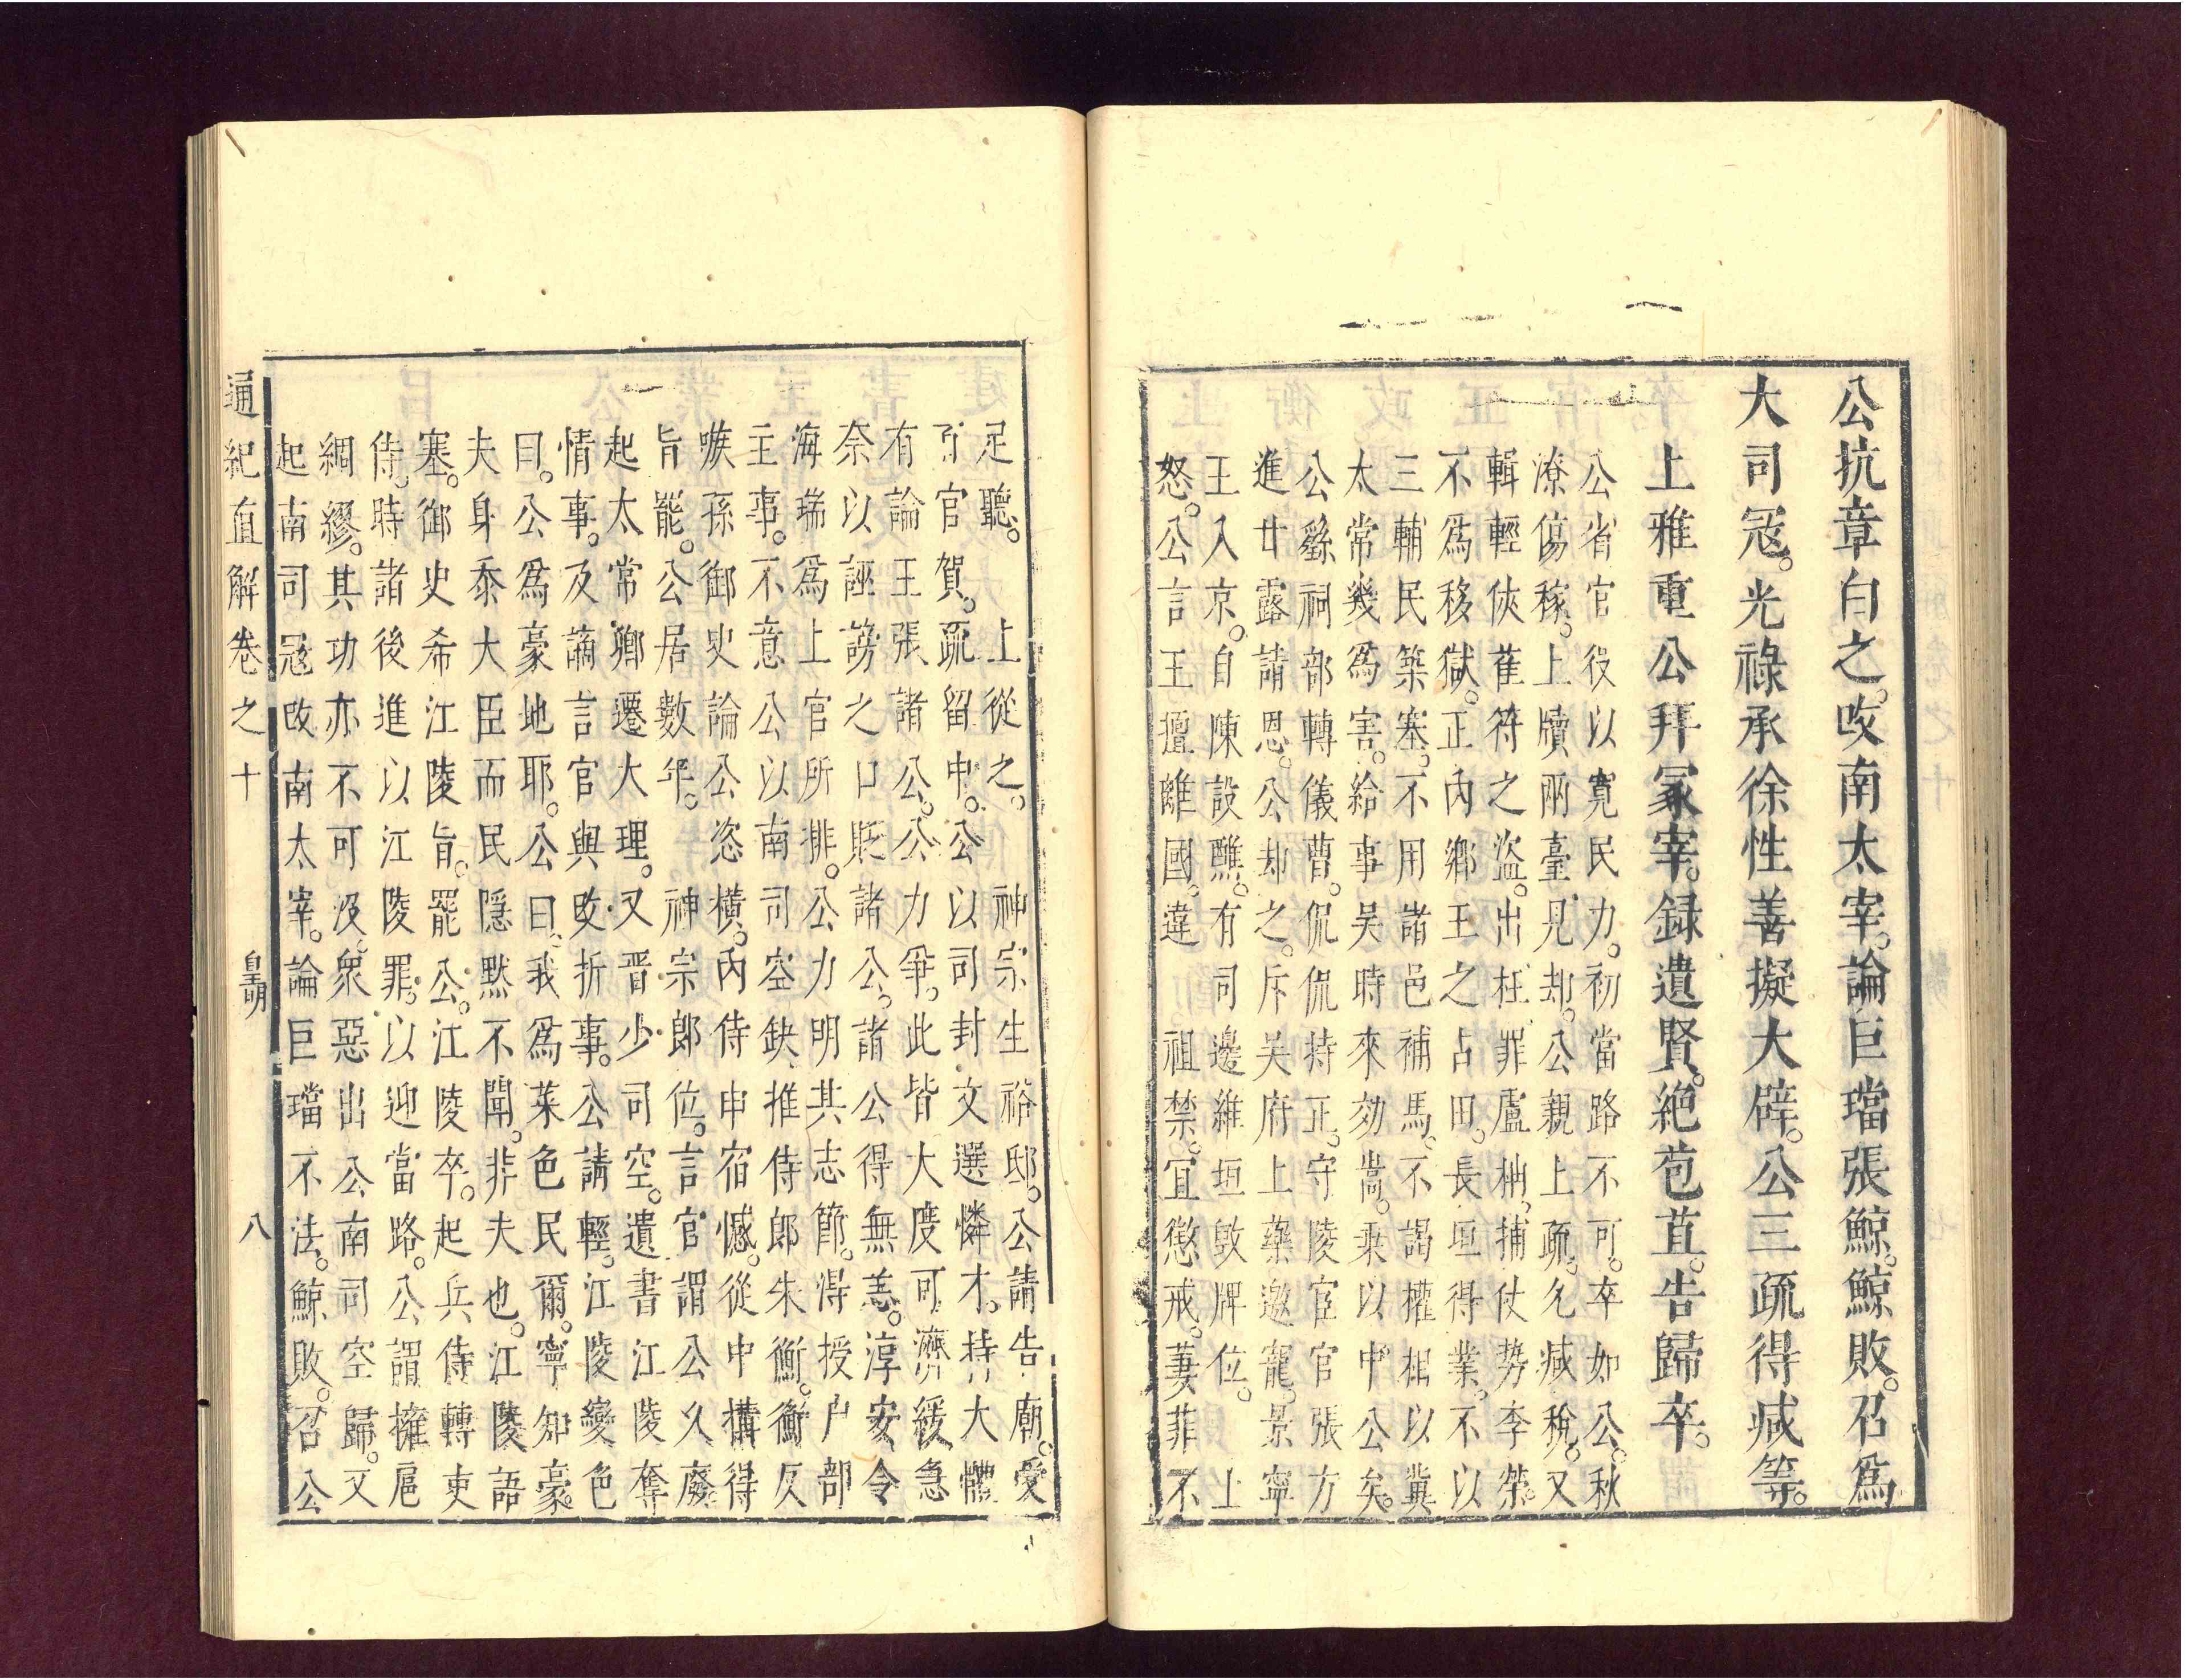 公抗章白之。攺南太宰。論巨璫張鯨。鯨敗。召爲
大司冦。光祿承徐性善擬大辟。公三疏得减等。
上雅重公拜冢宰。録遺賢。絕苞苴。告歸卒。
公省官役以寛民力。初當路不可。卒如公。秋
潦傷稼。上牘兩臺見却。公親上疏。乞减稅。又
輯輕俠萑苻之盜。出枉罪盧柟。捕仗势李榮。
不爲移獄。正內鄉王之占田。長垣得業。不以
三輔民築塞。不用諸邑補馬。不謁權相以冀
太常幾爲害。給事吴時來劾嵩。乗以中公矣。
公繇祠部轉儀曹。侃侃持正。守陵宦官張方
進廿露請恩。公却之。斥吴府上藥邀寵。景寧
王入京。自陳設醮。有司邊維垣敓牌位。上
怒。公言王擅離國。違祖禁。宜懲戒。萋菲不
足聽。上從之。神宗生裕邸。公請告廟。愛
百官賀。疏留中。公以司封文選憐才。持大體
有論王張諸公。公力爭。此皆大度可濟緩急
奈以誣謗之口貶諸公。諸公得無恙。淳安令
海瑞爲上官所排。公力明其志節。得授户部
主事。不意公以南司空缺推侍郎朱衡。衡仄
嗾孫御史論公恣橫。內侍申宿憾。從中搆得
旨罷。公居數年。神宗郎位。言官謂公久廢。
起太常鄉遷大理。又晋少司空。遺書江陵奪
情事。及謫言官與攺折事。公請輕。江陵變色
曰。公爲豪地耶。公曰。我爲菜色民爾。寧知豪。
夫身忝大臣而民隱默不聞。非夫也。江陵語
塞。御史希江陵旨。罷公。江陵卒。起兵侍轉吏
侍。時諸後進以江陵罪。以迎當路。公謂擁扈
綢繆。其功亦不可没。衆惡出公南司空歸。又
起南司冦攺南太宰。論巨璫不法。鯨敗。召公
通紀直解卷之十　皇明　八